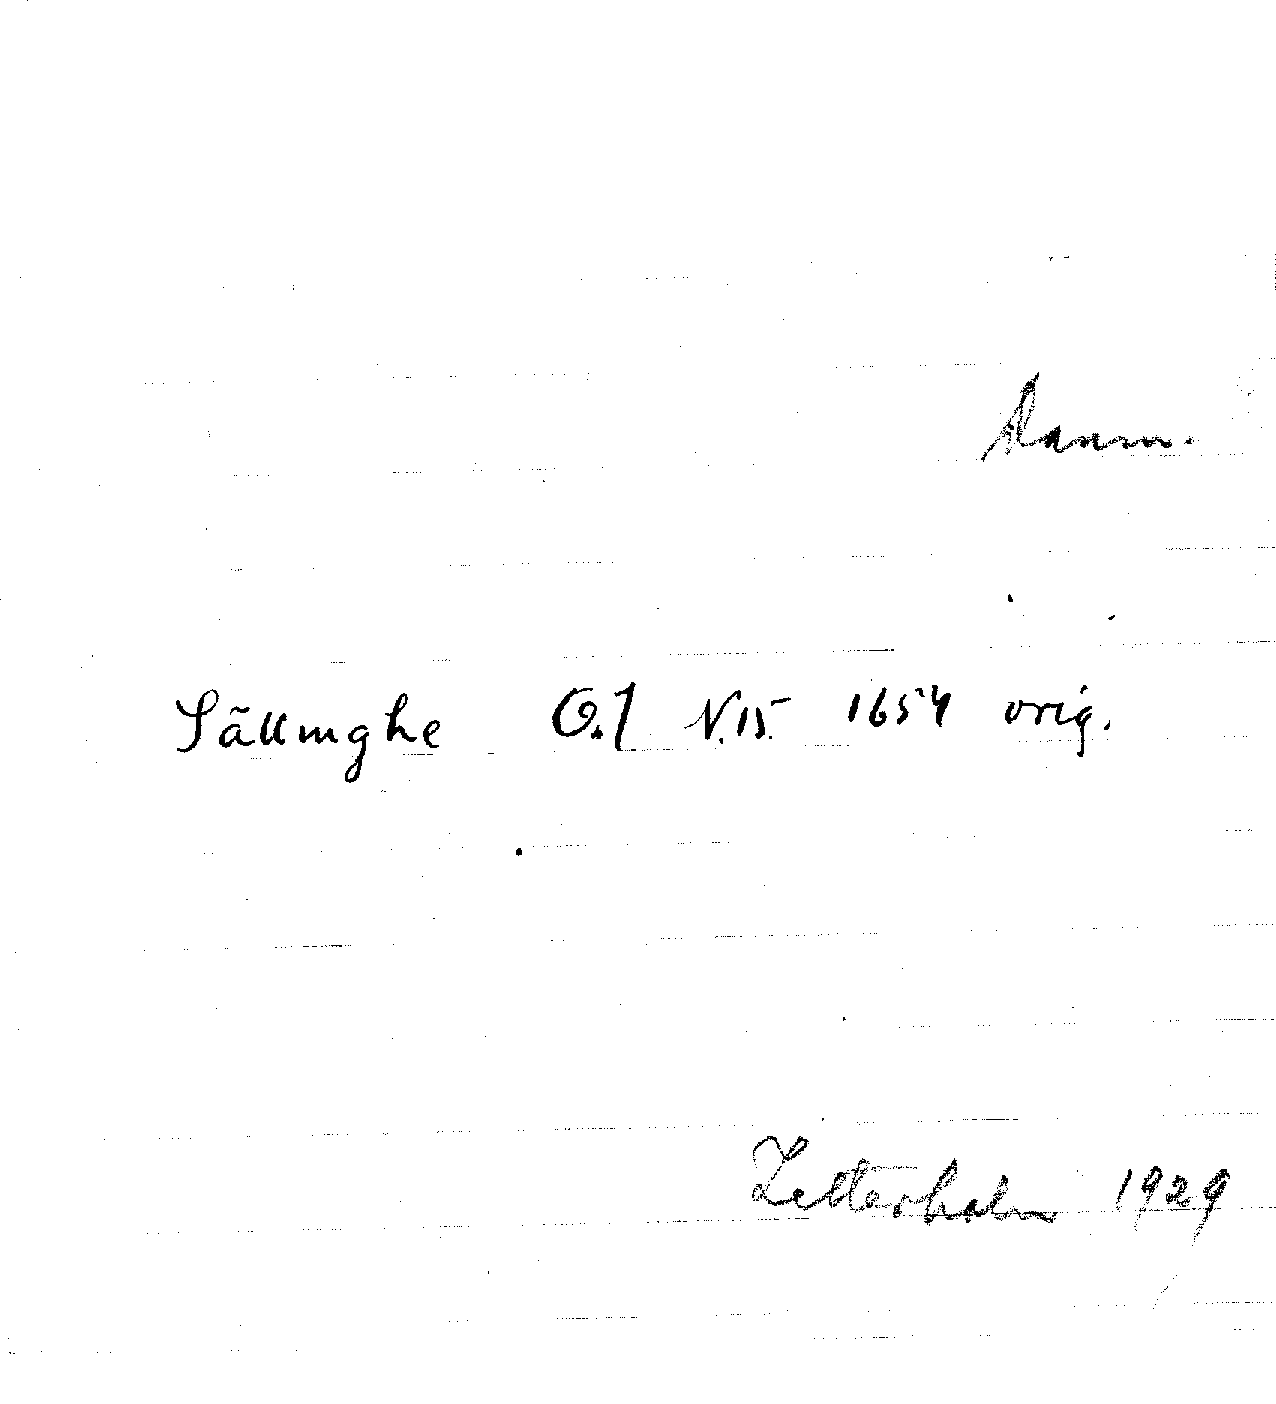 Danm.
Sällinghe O.J N.15. 1654 orig.
Zetterholm 1929